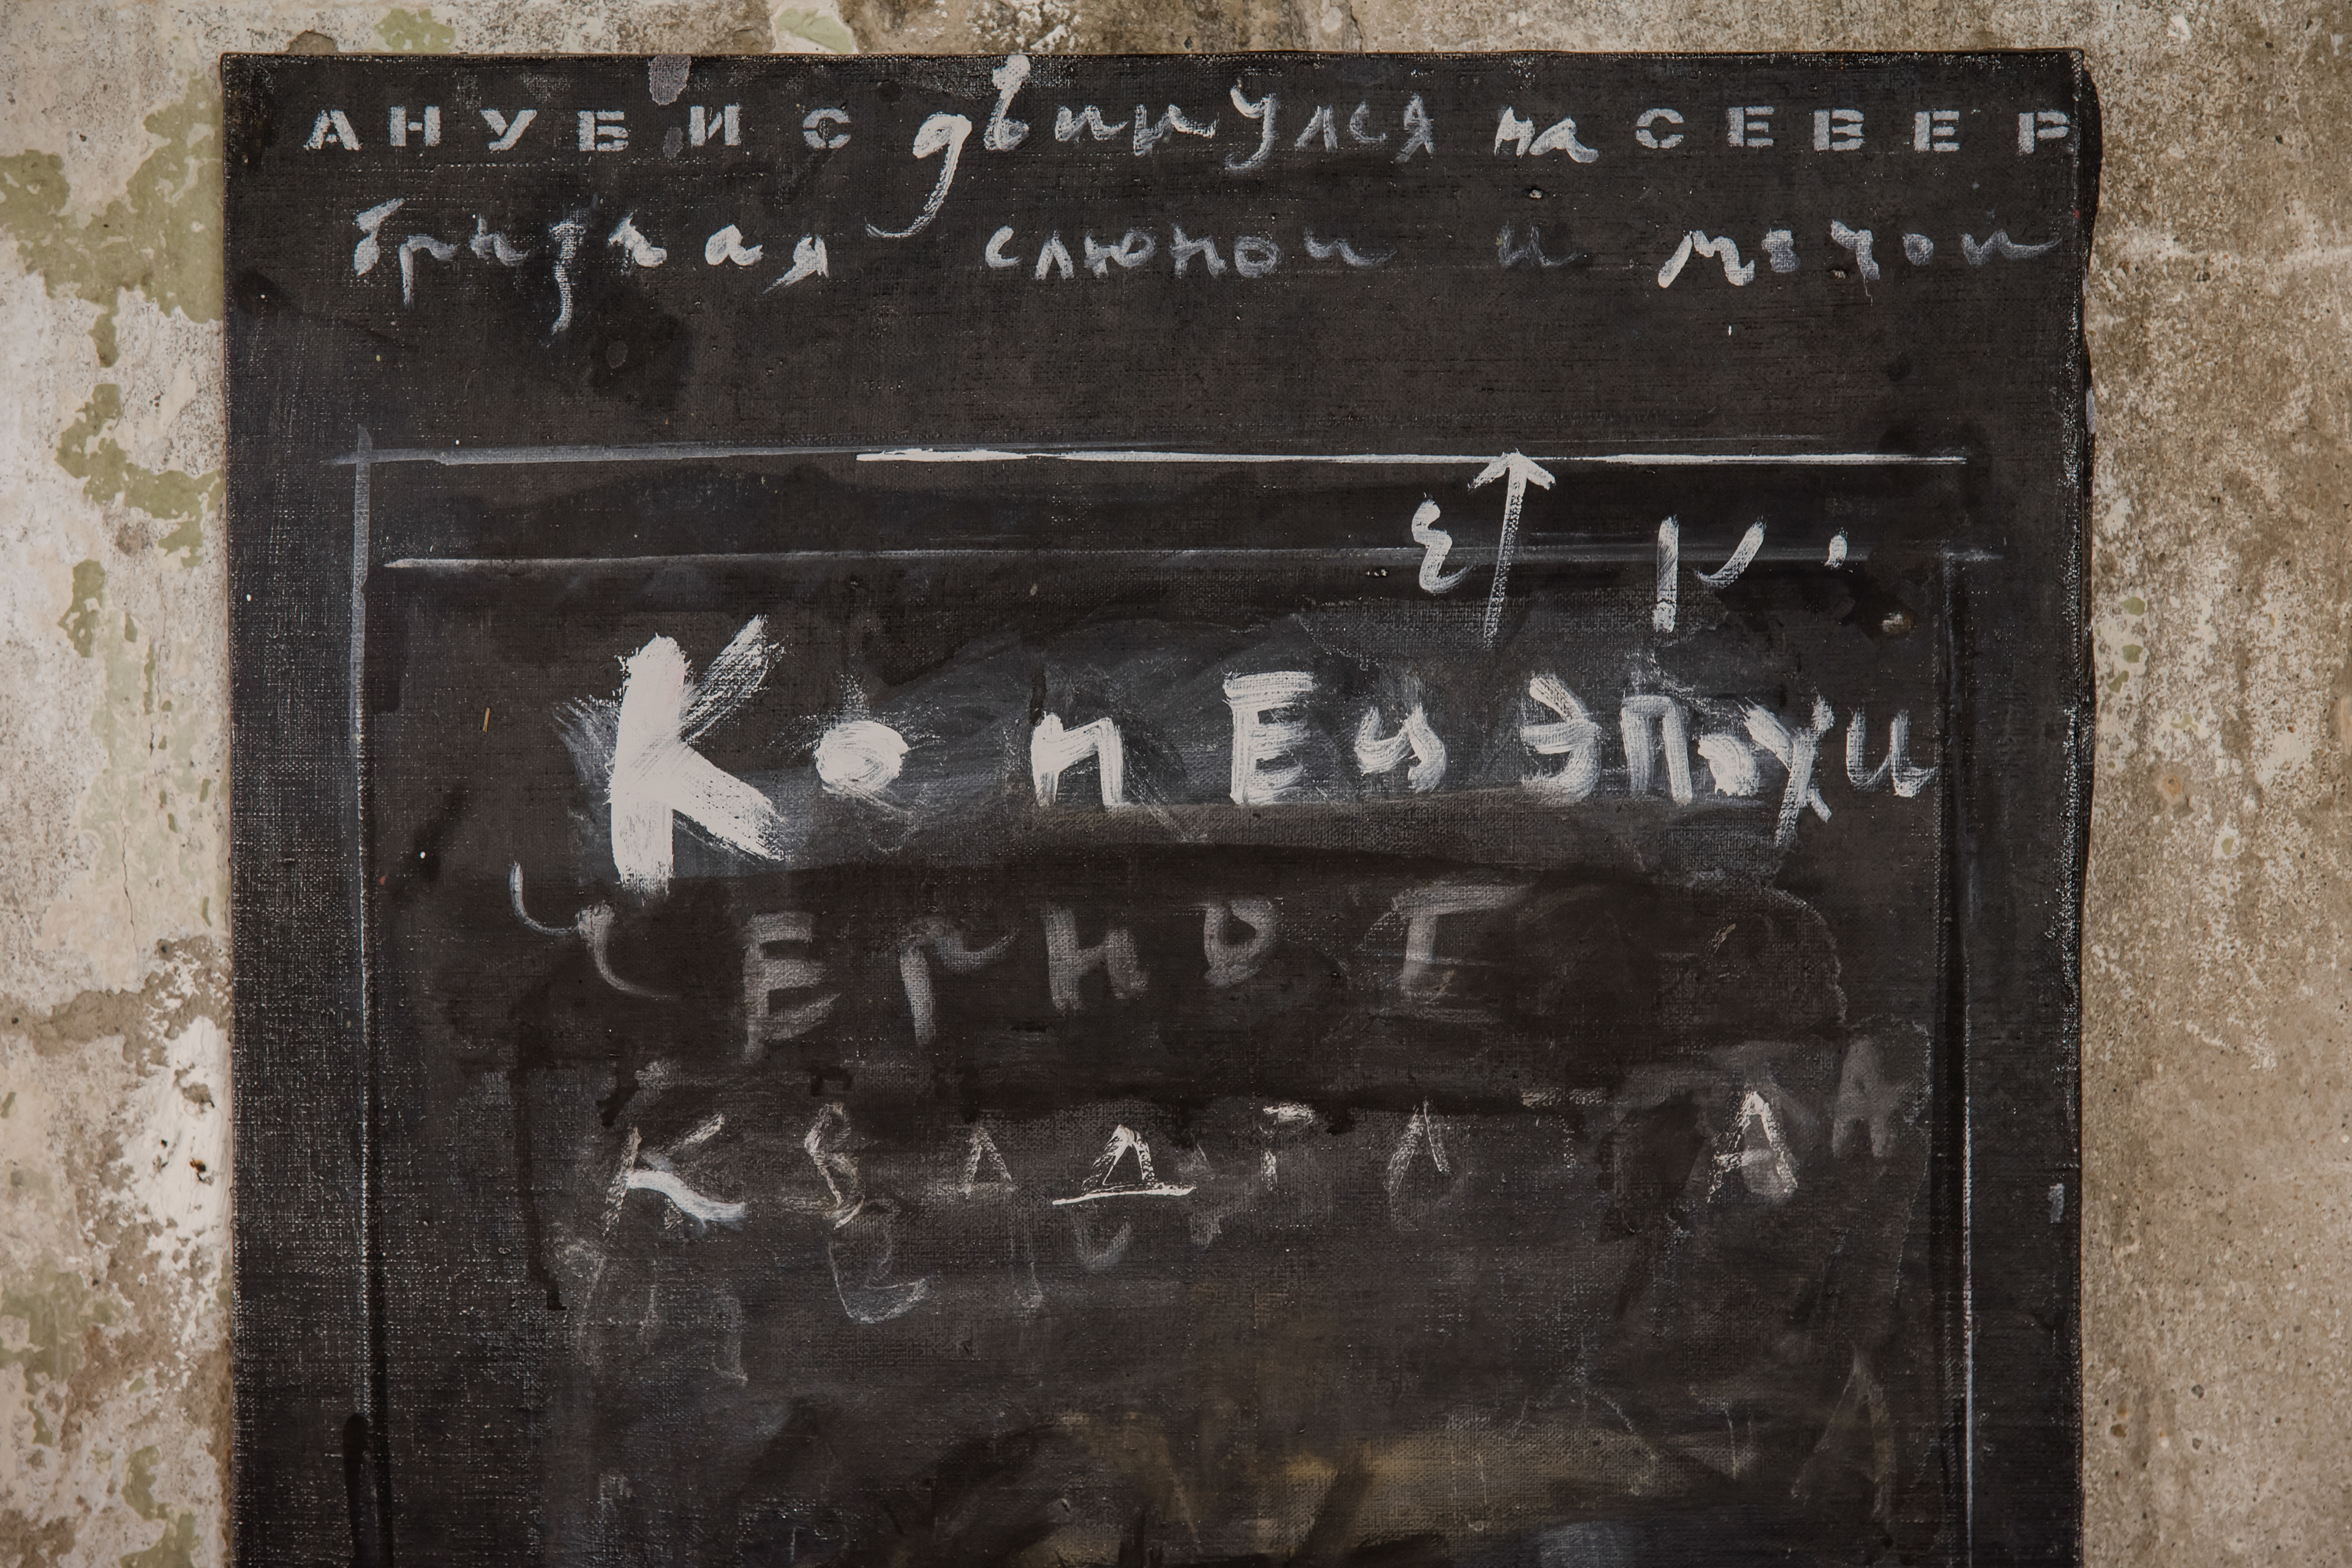 АНУБИС двинулся на СЕВЕР
брызгая слюной и мочой
КОНЕЦ ЭПОХИ
ЧЕРНОГ
КВАДРАТА